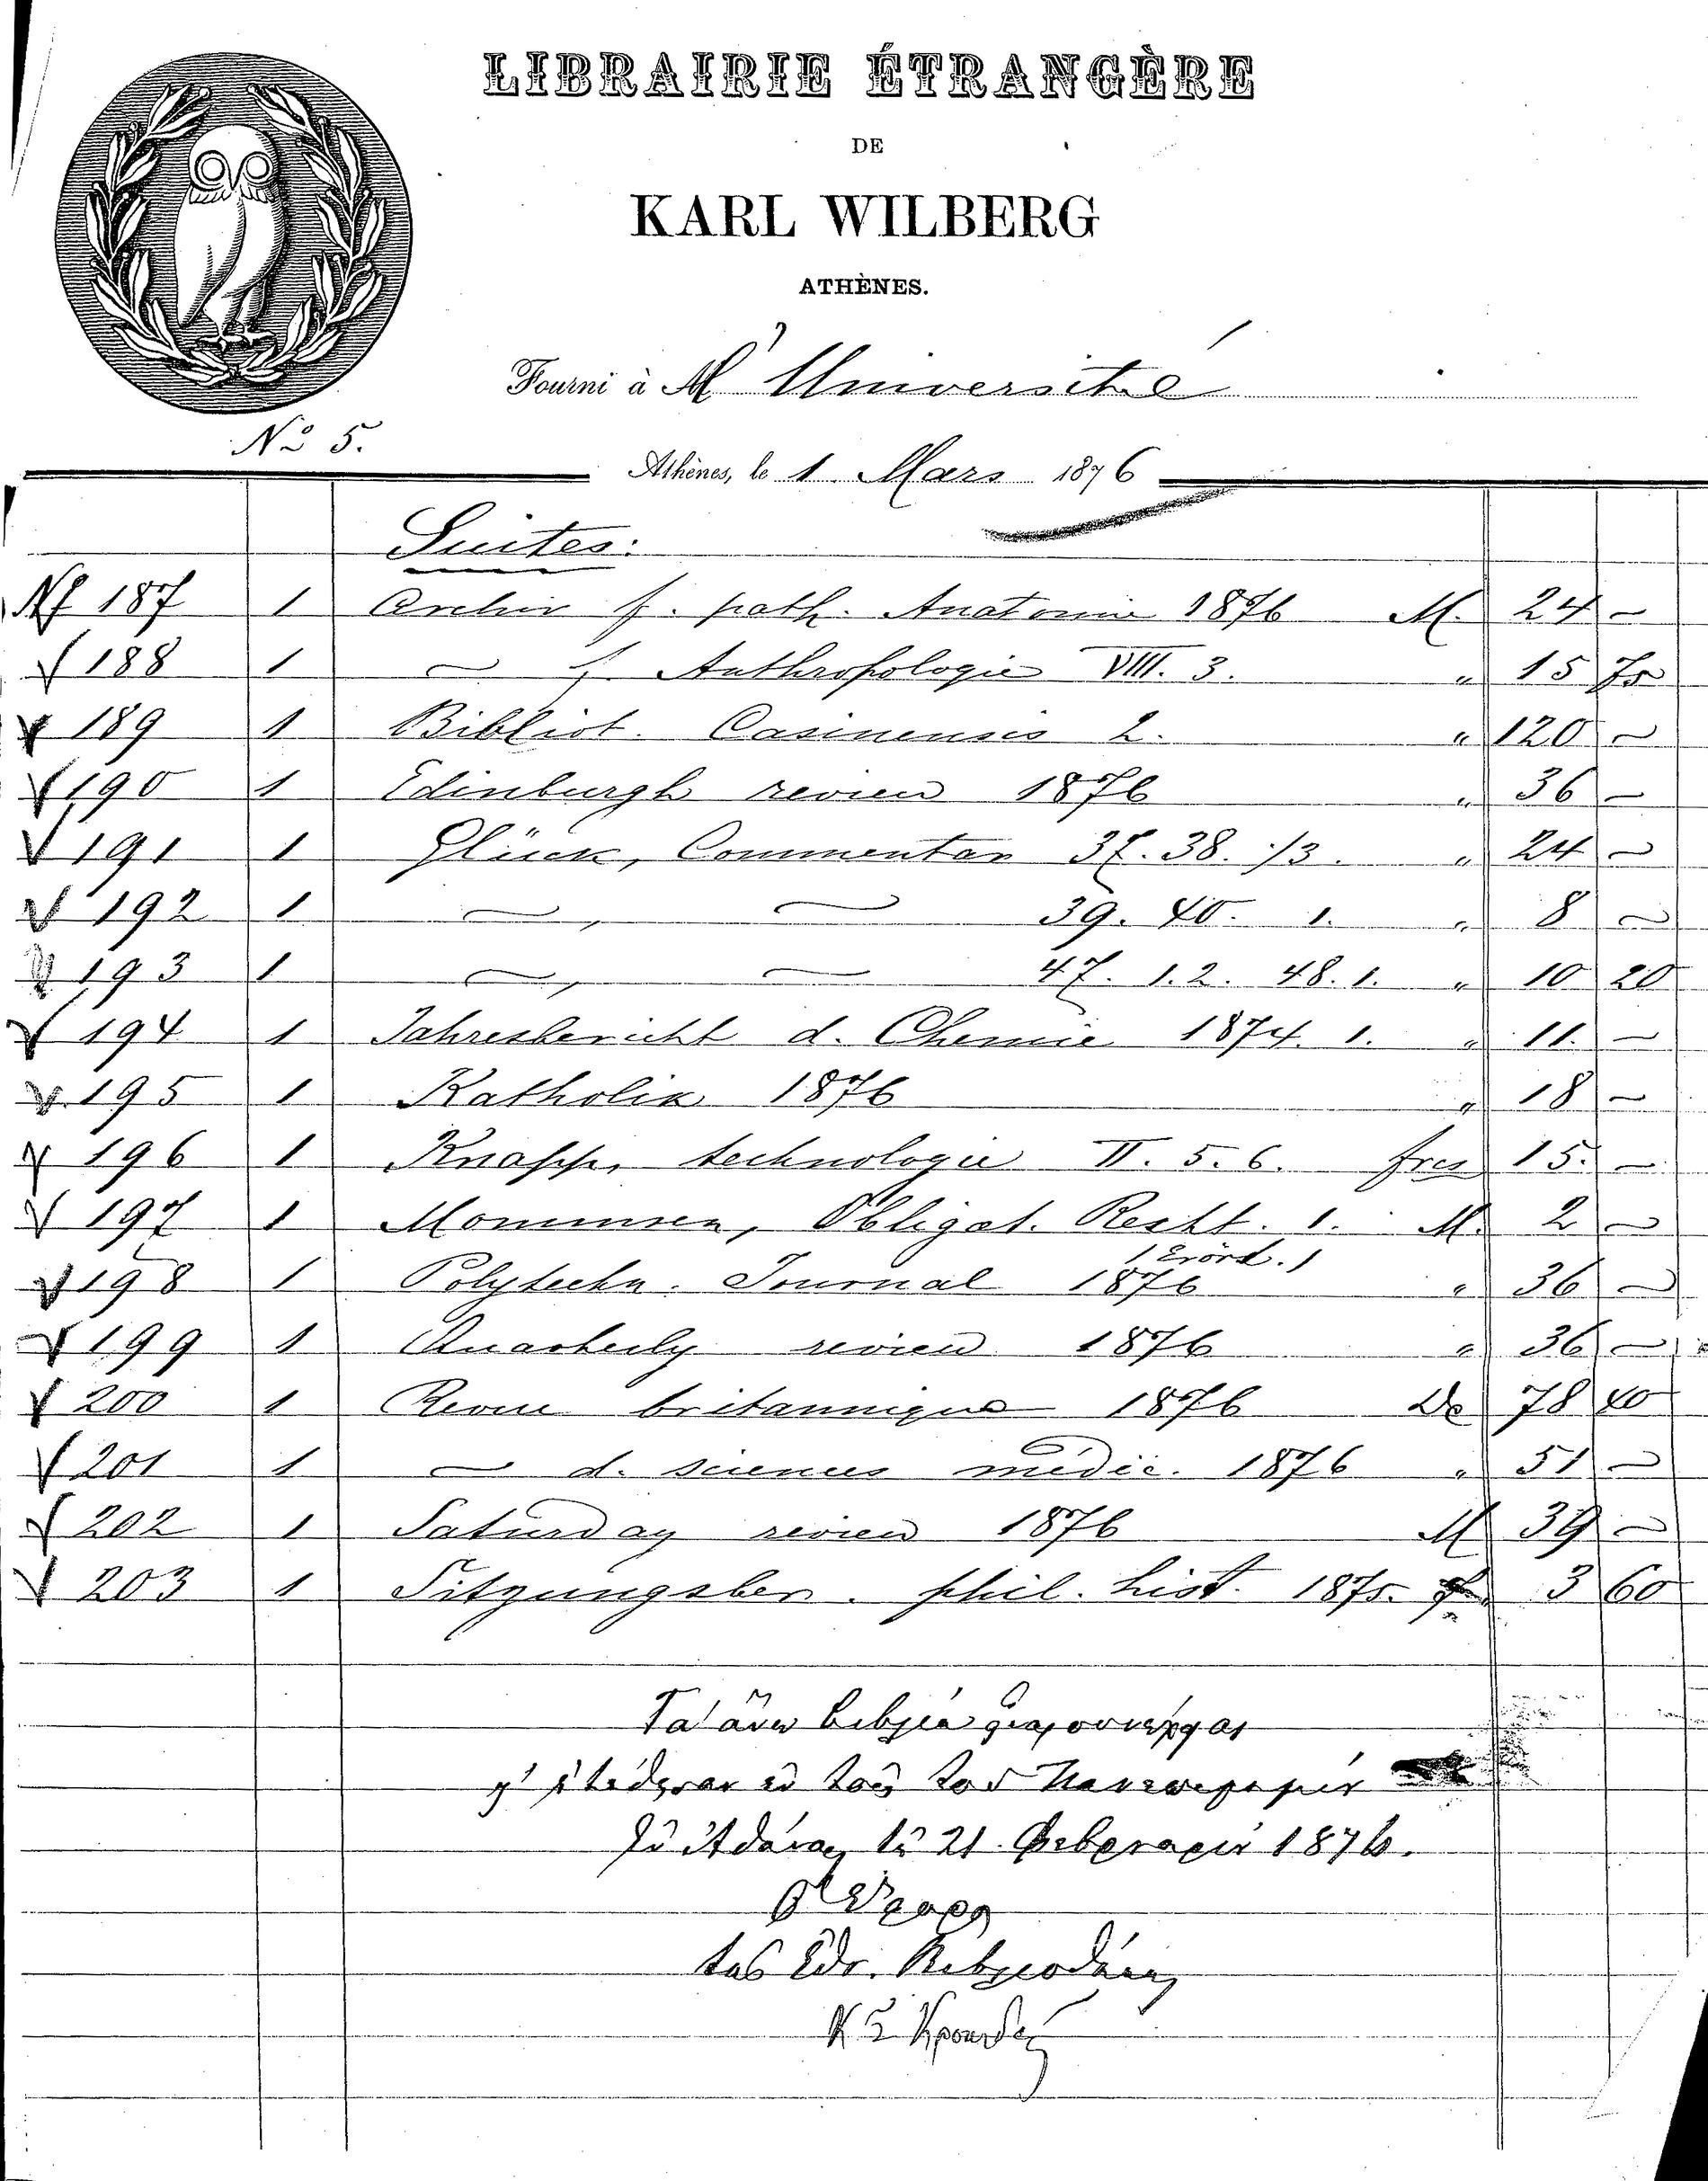 LIBRAIRIE ÉTRANGÈRE
DE
KARL WILBERG
ATHÈNES.
Fourni à M l'Université
No 5.
Athènes, le 1 Mars 1876
Suites:
187 1 Archiv f. path. Anatomie 1876 M. 24 —
188 1 — f. Anthropologie VIII. 3. " 15 75
189 1 Bibliot. Casinensis 2. " 120 —
190 1 Edinburgh review 1876 " 36 —
191 1 Glück, Commentar 37. 38. 1/3. " 24 —
192 1 —, — 39. 40. 1. " 8 —
193 1 —, — 47. 1. 2. 48. 1. " 10 20
194 1 Jahresbericht d. Chemie 1874. 1. " 11. —
195 1 Katholik 1876 " 18 —
196 1 Knapp, technologie II. 5. 6. frcs 15. —
197 1 Mommsen, Obligat. Recht. 1. M. 2 —
(Erört.)
198 1 Polytechn. Journal 1876 " 36 —
199 1 Quarterly review 1876 " 36 —
200 1 Revue britannique 1876 Dr 78 40
201 1 — d. sciences médic. 1876 " 51 —
202 1 Saturday review 1876 M 39 —
203 1 Sitzungsber. phil. hist. 1875. 3 60
Τὰ ἄνω βιβλία
Πανεπιστημίου
Ἐν Ἀθήναις τῇ 21 Φεβρουαρίου 1876.
Ὁ Ἔφορος
τῆς Ἐθν. Βιβλιοθήκης